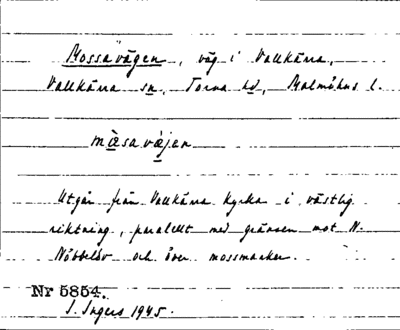 Mossavägen, väg i Vallkärra,
Vallkärra sn, Torna hd, Malmöhus l.
mòsa väjen
Utgår från Vallkärra kyrka i västlig
riktning, parallellt med gränsen mot N.
Nöbbelöv och över mossmarker.
Nr 5854.
I. Ingers 1945.